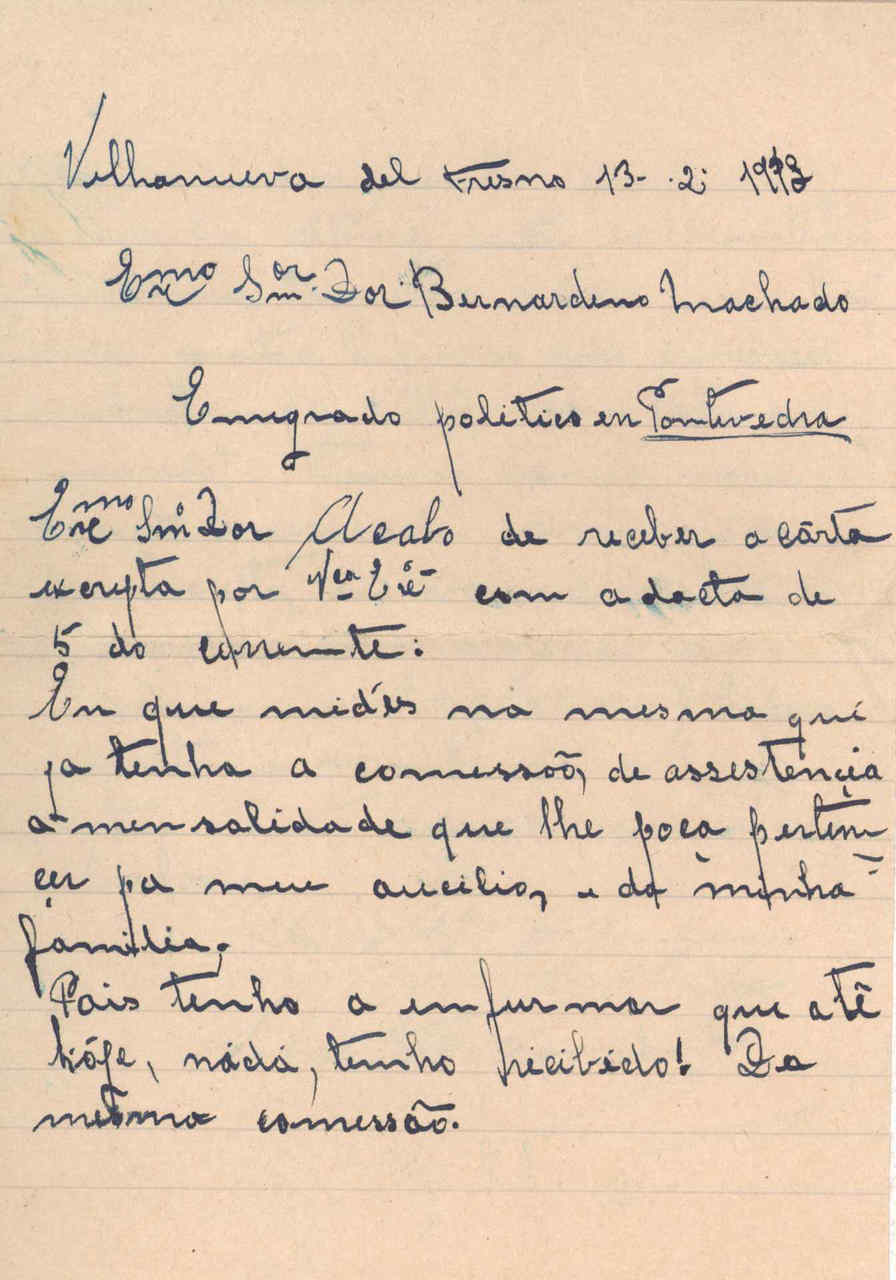 Vilhanueva del Fresno 13-.2:
Exmo Snr. Dor. Bernardeno Machado
Emegrado politico en Pontevedra
Exmo Snr Dor Acabo de receber a cárta
excripta por Vca Exª com a dacta de
5 do corrente:
En que mid'és na mesma qué
ja tenha a comessõõ, de assestençia
a mensalidade que lhe poça pertêm
çer pa meu aucilio, e da minha
familia;
Pois tenho a enfurmar que atê
hóje, nádá, tenho recibído! Da
mesma comessão.